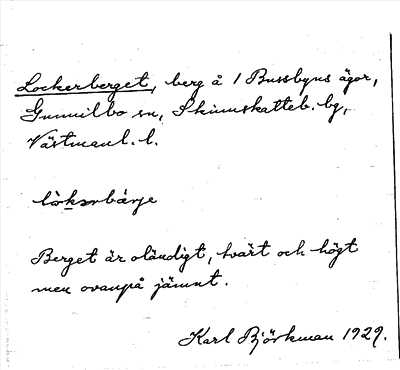 Lockerberget, berg å 1 Bussbyns ägor,
Gunnilbo sn, Skinnskatteb. bg,
Västmanl. l.
lòkərbàrje
Berget är oländigt, tvärt och högt
men ovanpå jämnt.
Karl Björkman 1929.